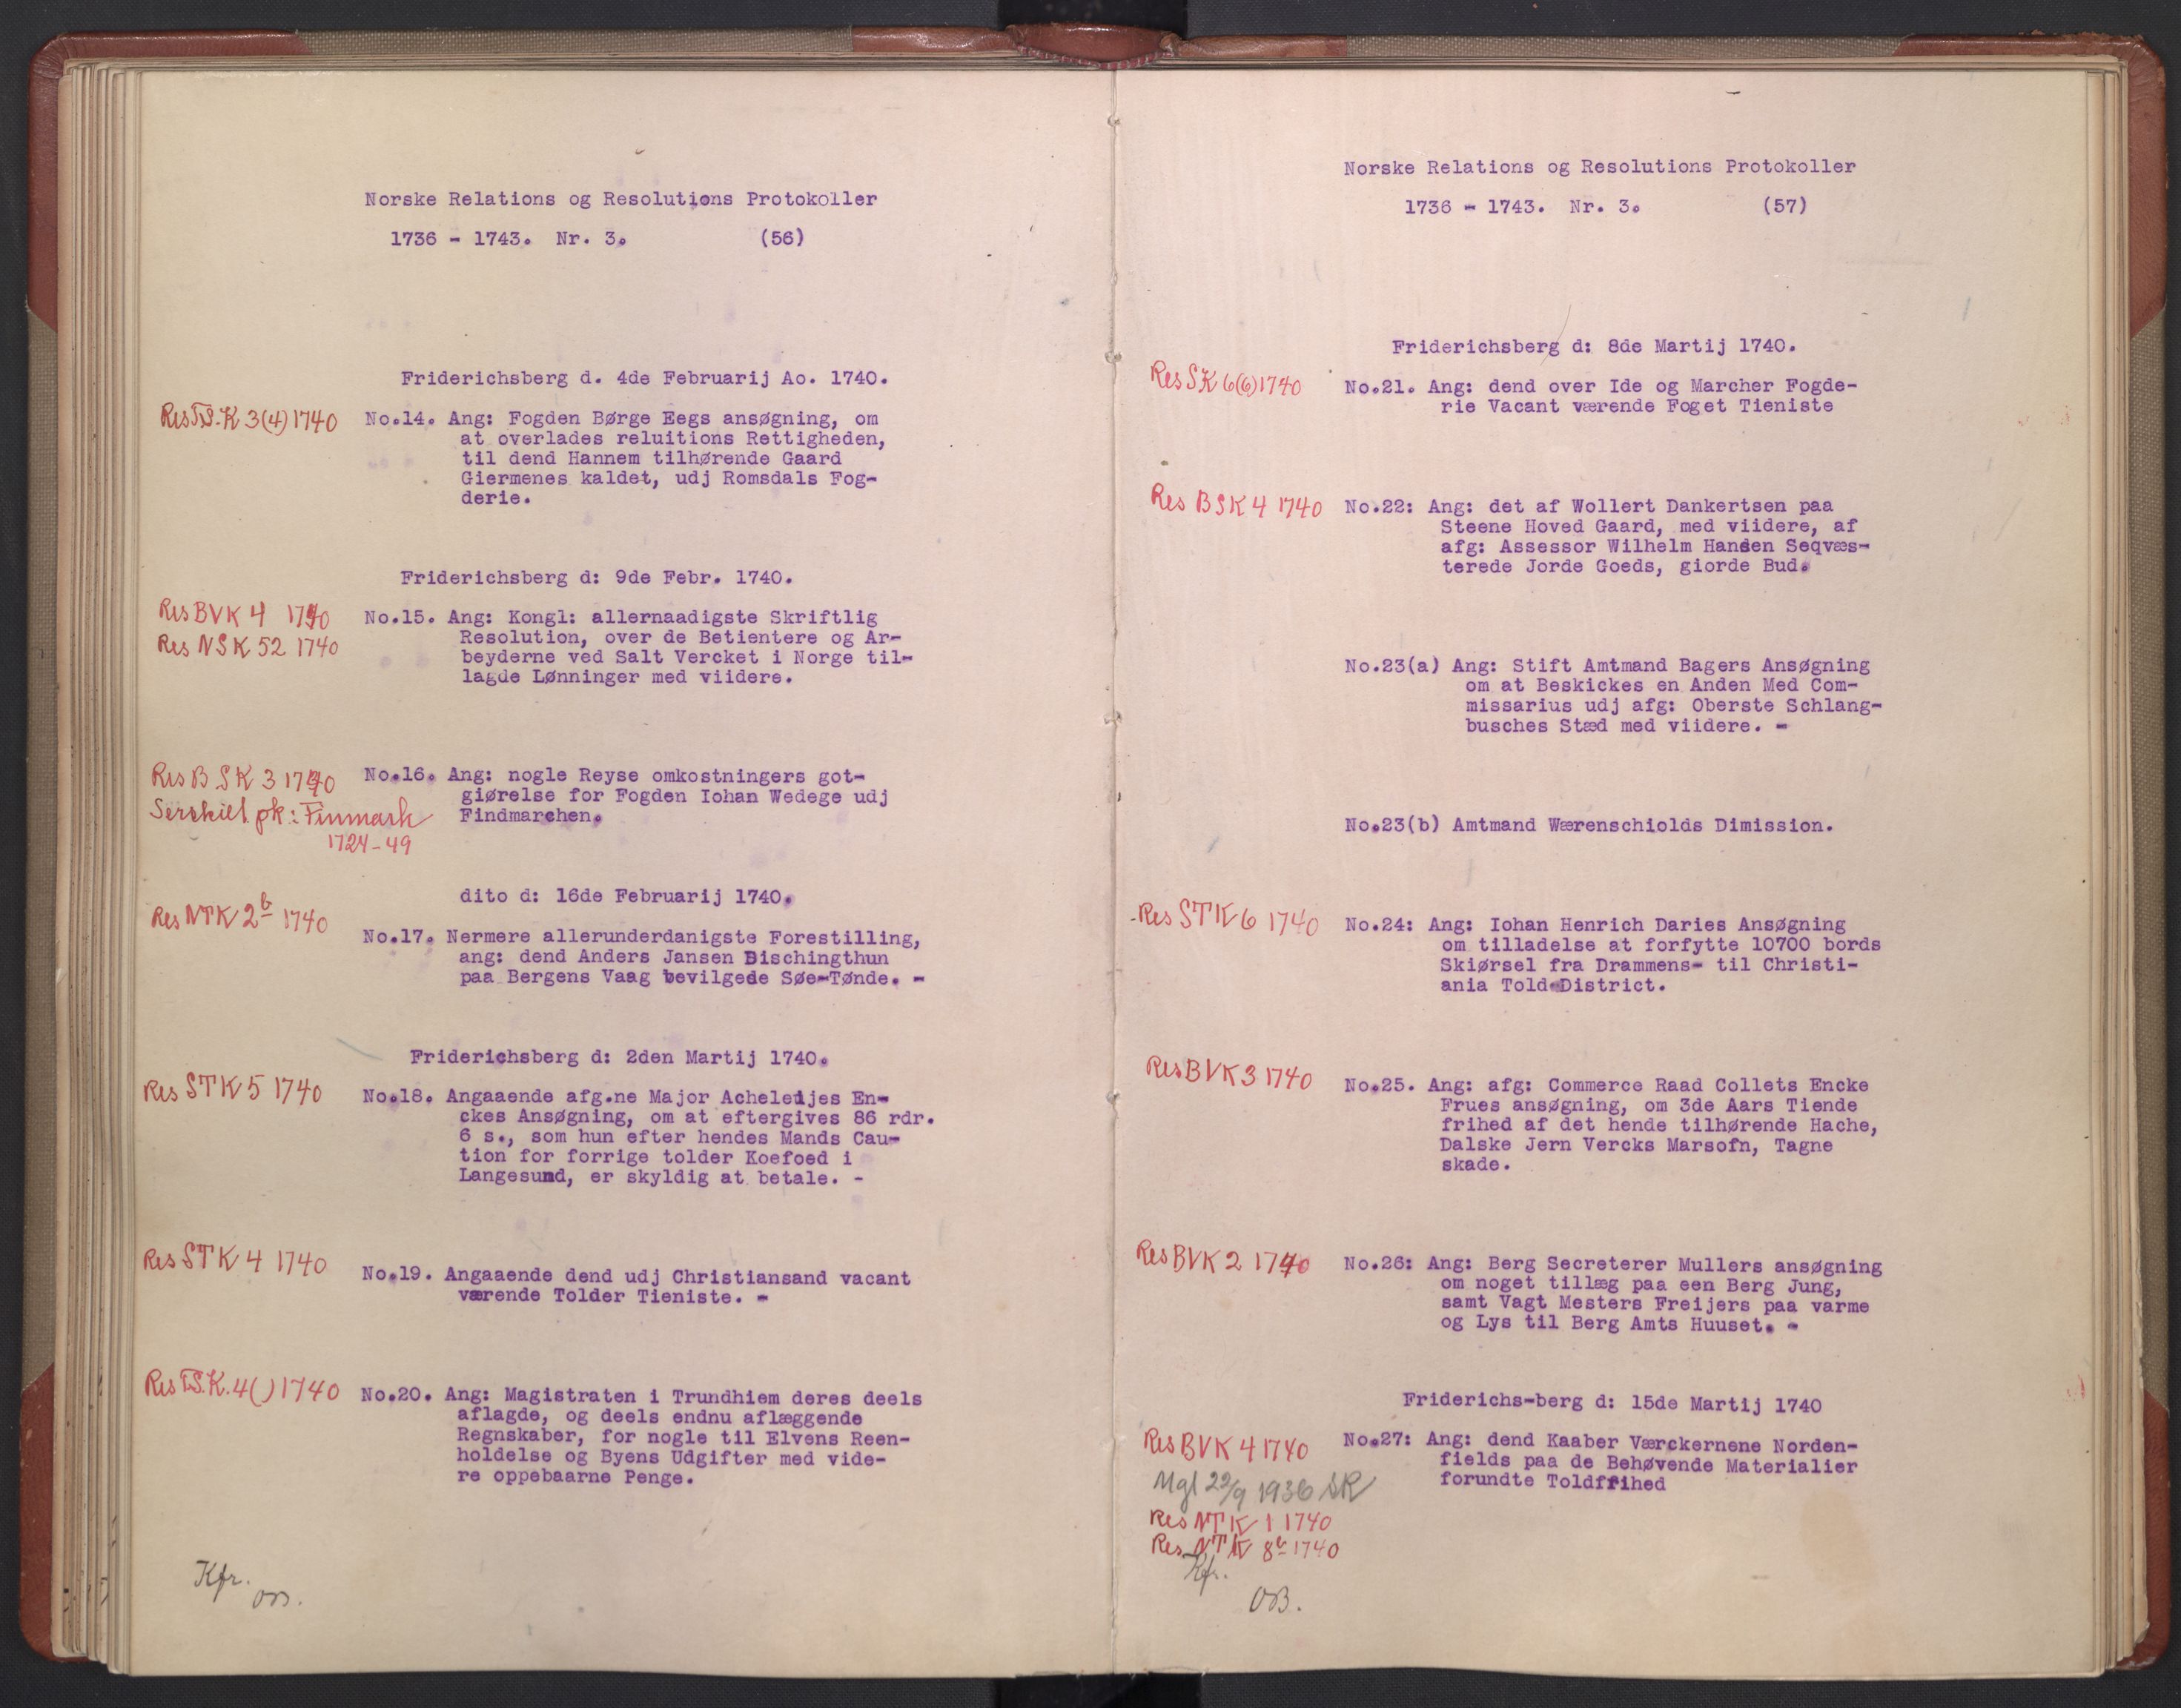 Norske Relations og Resolutions Protokoller
1736 - 1743. Nr. 3. (56)
Friderichsberg d. 4de Februarij Ao. 1740.
Res T.S.K 3(4) 1740
No.14. Ang: Fogden Børge Eegs ansøgning, om
at overlades reluitions Rettigheden,
til dend Hannem tilhørende Gaard
Giermenes kaldet, udj Romsdals Fog-
derie.
Friderichsberg d: 9de Febr. 1740.
Res BVK 4 1740
Res NSK 52 1740
No.15. Ang: Kongl: allernaadigste Skriftlig
Resolution, over de Betientere og Ar-
beyderne ved Salt Vercket i Norge til-
lagde Lønninger med viidere.
Res B SK 3 1740
Serskilt pk: Finmark
1724-49
No.16. Ang: nogle Reyse omkostningers got-
giørelse for Fogden Iohan Wedege udj
Findmarchen.
dito d: 16de Februarij 1740.
Res NTK 2b 1740
No.17. Nermere allerunderdanigste Forestilling,
ang: dend Anders Jansen Bischingthun
paa Bergens Vaag bevilgede Søe-Tønde. -
Friderichsberg d: 2den Martij 1740.
Res STK 5 1740
No.18. Angaaende afg.ne Major Acheleijes En-
ckes Ansøgning, om at eftergives 86 rdr.
6 s., som hun efter hendes Mands Cau-
tion for forrige tolder Koefoed i
Langesund, er skyldig at betale. -
Res STK 4 1740
No.19. Angaaende dend udj Christiansand vacant
værende Tolder Tieniste. -
Res T.S.K. 4( ) 1740
No.20. Ang: Magistraten i Trundhiem deres deels
aflagde, og deels endnu aflæggende
Regnskaber, for nogle til Elvens Reen-
holdelse og Byens Udgifter med vide-
re oppebaarne Penge.
Kfr.
OB.
Norske Relations og Resolutions Protokoller
1736 - 1743. Nr. 3. (57)
Friderichsberg d: 8de Martij 1740.
Res SK 6(6) 1740
No.21. Ang: dend over Ide og Marcher Fogde-
rie Vacant værende Foget Tieniste
Res BSK 4 1740
No.22: Ang: det af Wollert Dankertsen paa
Steene Hoved Gaard, med viidere, af
afg: Assessor Wilhelm Hansen Seqvæs-
terede Jorde Goeds, giorde Bud.
No.23(a) Ang: Stift Amtmand Bagers Ansøgning
om at Beskickes en Anden Med Com-
missarius udj afg: Oberste Schlang-
busches Stæd med viidere. -
No.23(b) Amtmand Wærenschiolds Dimission.
Res STK 6 1740
No.24: Ang: Iohan Henrich Daries Ansøgning
om tilladelse at forfytte 10700 bords
Skiørsel fra Drammens- til Christi-
ania Told-District.
Res BVK 3 1740
No.25. Ang: afg: Commerce Raad Collets Encke
Frues ansøgning, om 3de Aars Tiende
frihed af det hende tilhørende Hache,
Dalske Jern Vercks Marsofn, Tagne
skade.
Res BVK 2 1740
No.26: Ang: Berg Secreterer Mullers ansøgning
om noget tillæg paa een Berg Jung,
samt Vagt Mesters Freijers paa varme
og Lys til Berg Amts Huuset. -
Friderichs-berg d: 15de Martij 1740
Res BVK 4 1740
Mgl 22/9 1936 SR
Res NTK 1 1740
Res NTK 8b 1740
No.27: Ang: dend Kaaber Værckernene Norden-
fields paa de Behøvende Materialier
forundte Toldfrihed
Kfr.
OB.